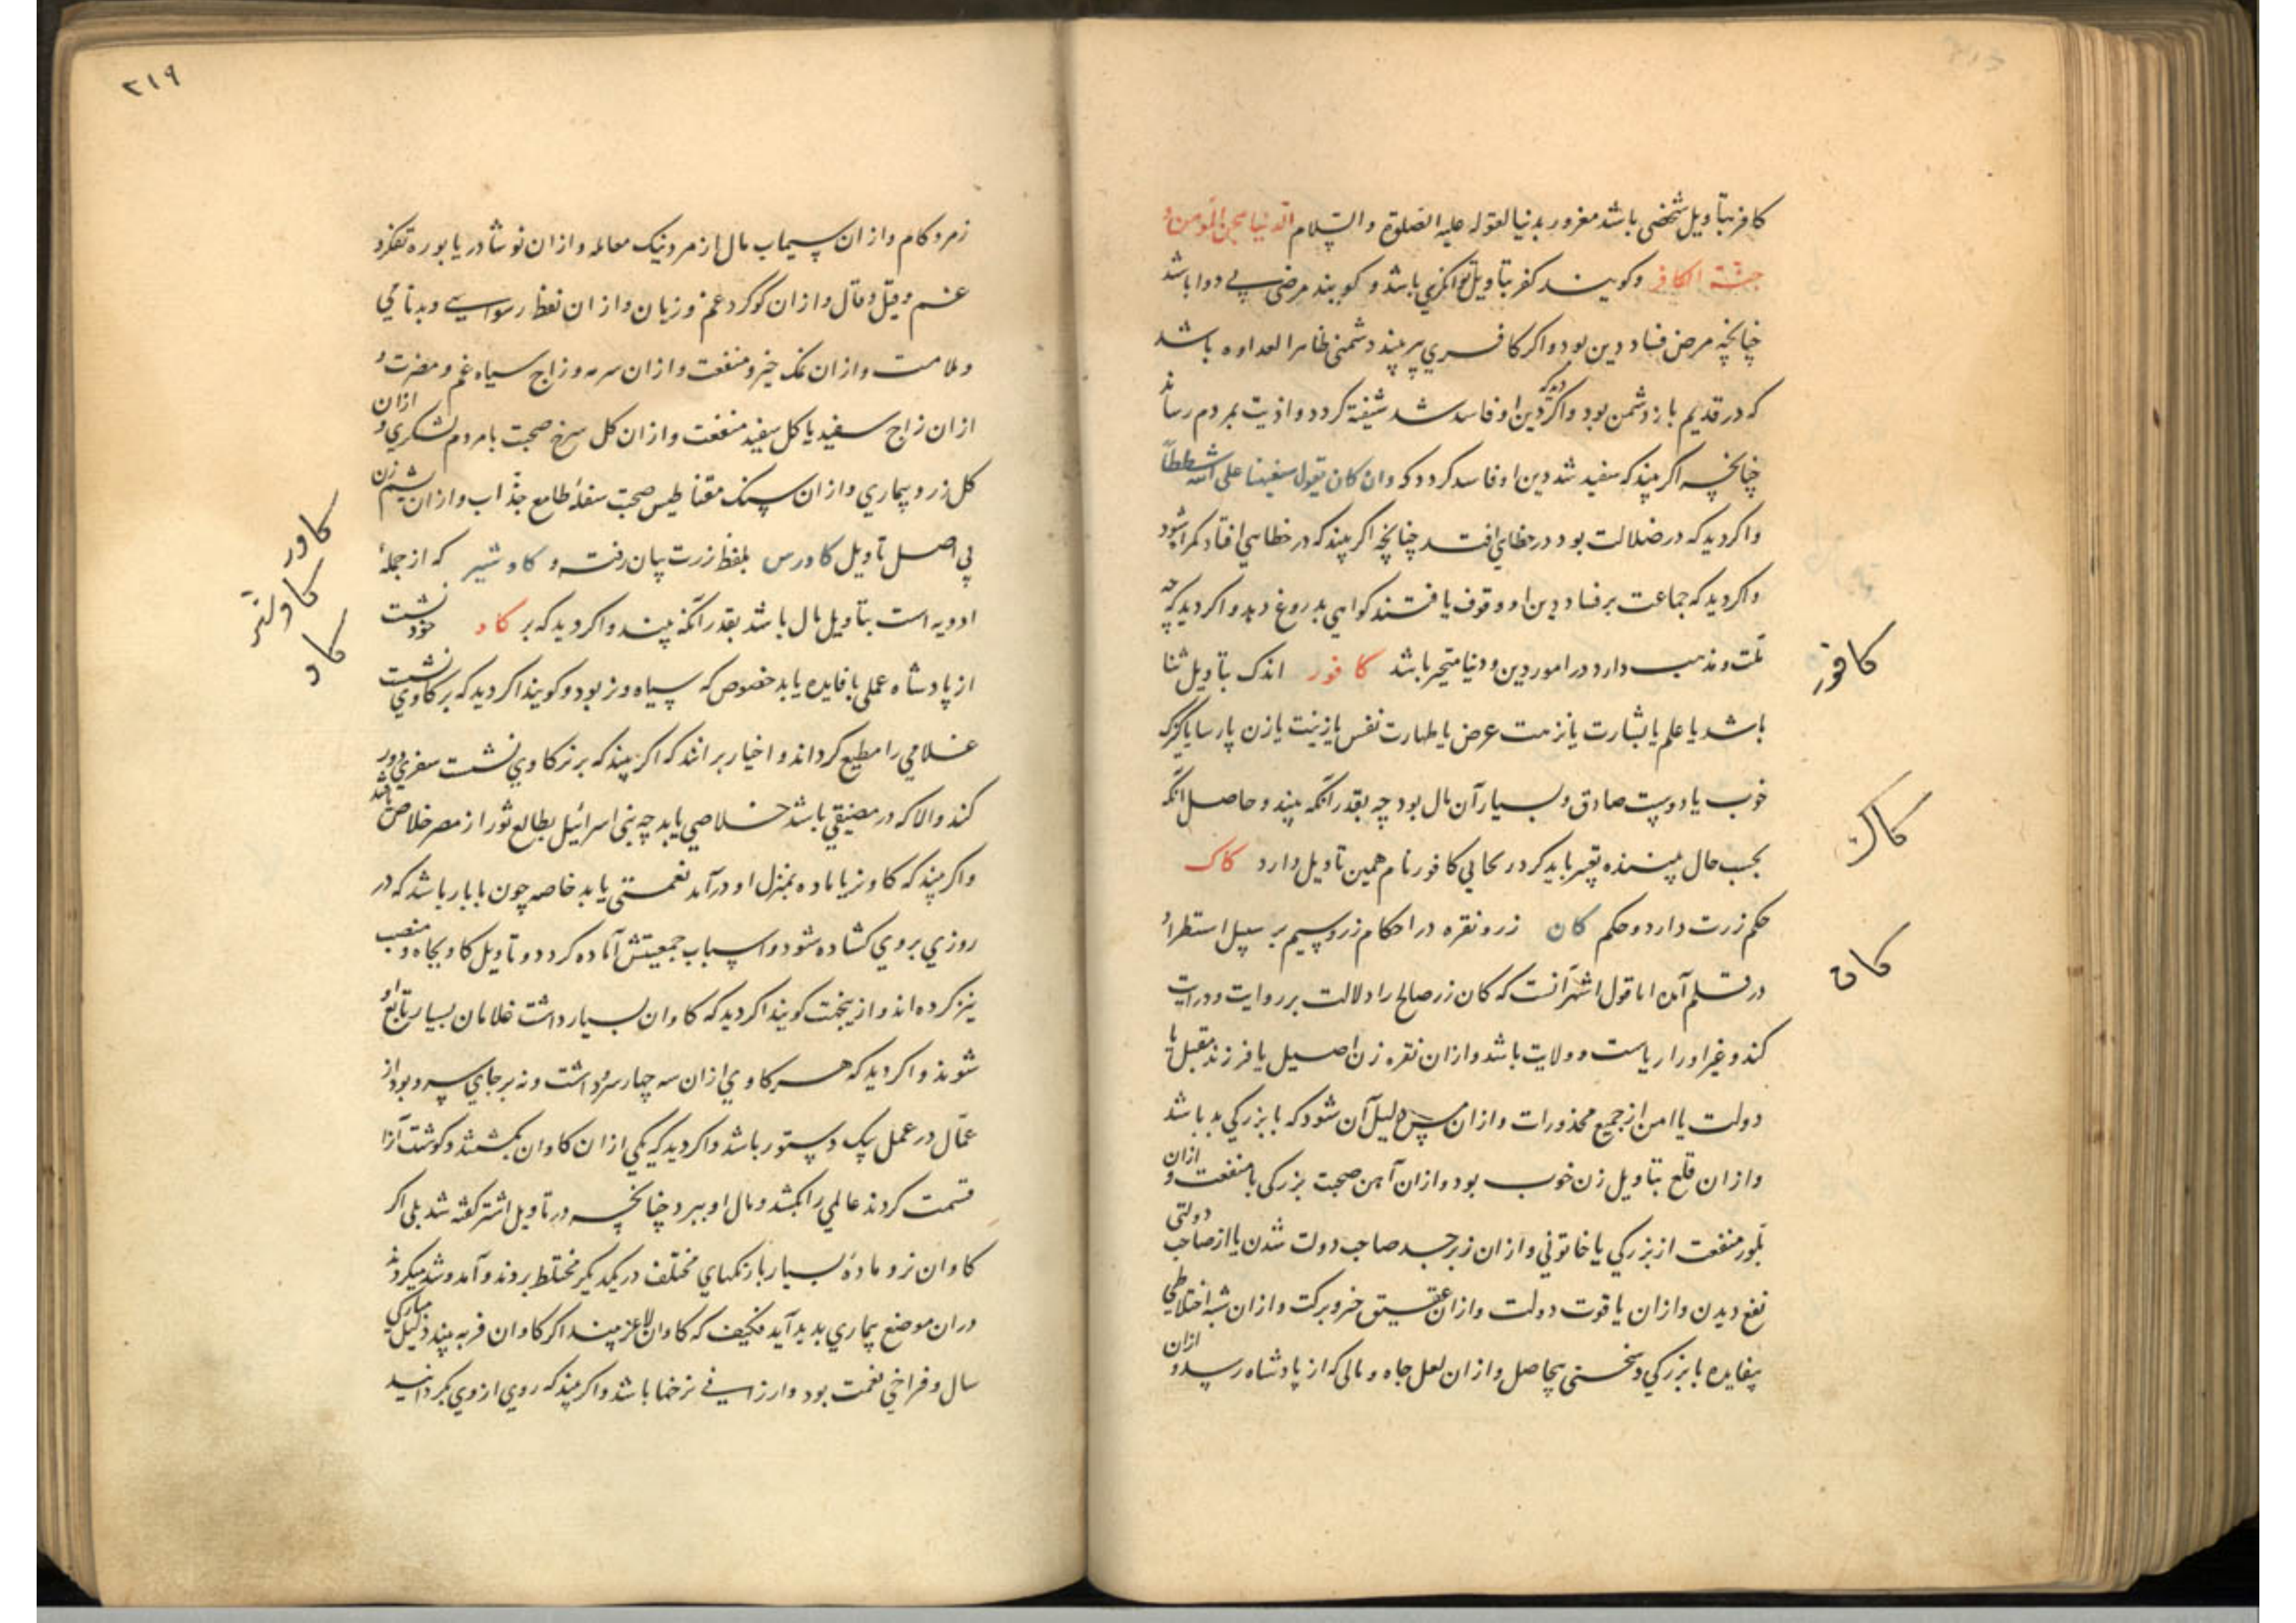 کافر بتأویل شخصی باشد مغرور بدنیا لقوله علیه الصلوة والسّلام الدنیا سجن المؤمن و
جنة الکافر وکویند کفر بتاویل توانکری باشد و کویند مرضی بی دوا باشد
چنانچه مرض فساد دین بود واکر کافری پیر بیند دشمنی ظاهر العداوه باشد
که در قدیم باز دشمن بود واکر دیدکه دین او فاسد شد شیفته کردد واذیت بمردم رساند
چنانچه اکر بیند که سفیه شد دین او فاسد کردد که وان کان یقول سفیهنا علی الله شططاً
واکر دید که در ضلالت بود در خطایی افتد چنانچه اکر بیند که در خطایی افتاد کمراه شود
واکر دید که جماعت بر فساد دین او وقوف یافتند کواهی بدروغ دهد واکر دید که چه
ملت ومذهب دارد در امور دین ودنیا متحیر باشد کافور اندک بتأویل ثنا
باشد یا علم یا بشارت یا نزهت عرض یا طهارت نفس یا زینت یا زن پارسا یا کنیزک
خوب یا دوست صادق وبسیار آن مال بود چه بقدر آنکه بیند وحاصل آنکه
بحسب حال بیننده تعبیر باید کرد ریحانی کافور نام همین تاویل دارد کاک
حکم زرت دارد وحکم کان زر ونقره در احکام زر وسیم بر سبیل استطراد
در قلم آمد اما قول اشهر آنست که کان زر صالح را دلالت بر روایت ودرایت
کند وغیر او را ریاست وولایت باشد وازان نقره زن اصیل یا فرزند مقبل یا
دولت یا امن از جمیع محذورات وازان مس دلیل آن شود که با بزرکی بد باشد
وازان قلع بتاویل زن خوب بود وازان آهن صحبت بزرکی با منفعت وازان
بلور منفعت از بزرکی یا خاتونی وازان زبرجد صاحب دولت شدن یا از صاحب دولتی
نفع دیدن وازان یاقوت دولت وازان عقیق خیر وبرکت وازان شبه اختلاطی
بیفایده با بزرکی وسخنی بیحاصل وازان لعل جاه ومالی که از پادشاه رسد وازان
کافور
کاک
کان
۲۱۹
زمرد کام وازان سیماب مال از مرد نیک معامله وازان نوشادر یا بوره تفکر و
غم وقیل وقال وازان کوکرد غم وزیان وازان نفط رسوایی وبدنامی
وملامت وازان نمک خیر ومنفعت وازان سرمه وزاج سیاه غم ومضرت و
ازان زاج سفید یا کل سفید منفعت وازان کل سرخ صحبت با مردم لشکری وازان
کل زرد بیماری وازان سنک مقناطیس صحبت سفلهٔ طامع جذاب وازان یشم زن
بی اصل تاویل کاورس بلفظ زرت بیان رفت و کاوشیر که از جملهٔ
ادویه است بتاویل مال باشد بقدر آنکه بیند واکر دید که بر کاو خود نشست
از پادشاه عملی با فایده یابد خصوص که سیاه ونر بود وکویند اکر دید که بر کاوی نشست
غلامی را مطیع کرداند واخیار برانند که اکر بیند که بر نر کاوی نشست سفری دور
کند والا که در مضیقی باشد خلاصی یابد چه بنی اسرائیل بطالع ثور از مصر خلاص یافتند
واکر بیند که کاو نر یا ماده بمنزل او درآمد نعمتی یابد خاصه چون با بار باشد که در
روزی بروی کشاده شود واسباب جمعیتش آماده کردد وتاویل کاو بجاه ومنصب
نیز کرده اند وازینجهت کویند اکر دید که کاوان بسیار داشت غلامان بسیار تابع او
شوند واکر دید که هر کاوی ازان سه چهار سر داشت ونه بر جای سر بود از
عمّال در عمل یک دستور باشد واکر دید که یکی ازان کاوان بکشتند وکوشت آنرا
قسمت کردند عالمی را بکشد ومال او ببرد چنانچه در تاویل اشتر کفته شد بلی اکر
کاوان نر ومادهٔ بسیار با رنکهای مختلف در یکدیکر مختلط بودند وآمد وشد میکردند
دران موضع بیماری بدید آید فکیف که کاوان لاغر بیند اکر کاوان فربه بیند دلیل مبارکی
سال وفراخی نعمت بود وارزانی نرخها باشد واکر بیند که روی از وی بکردانید
کاور
کاوشیر
کاو